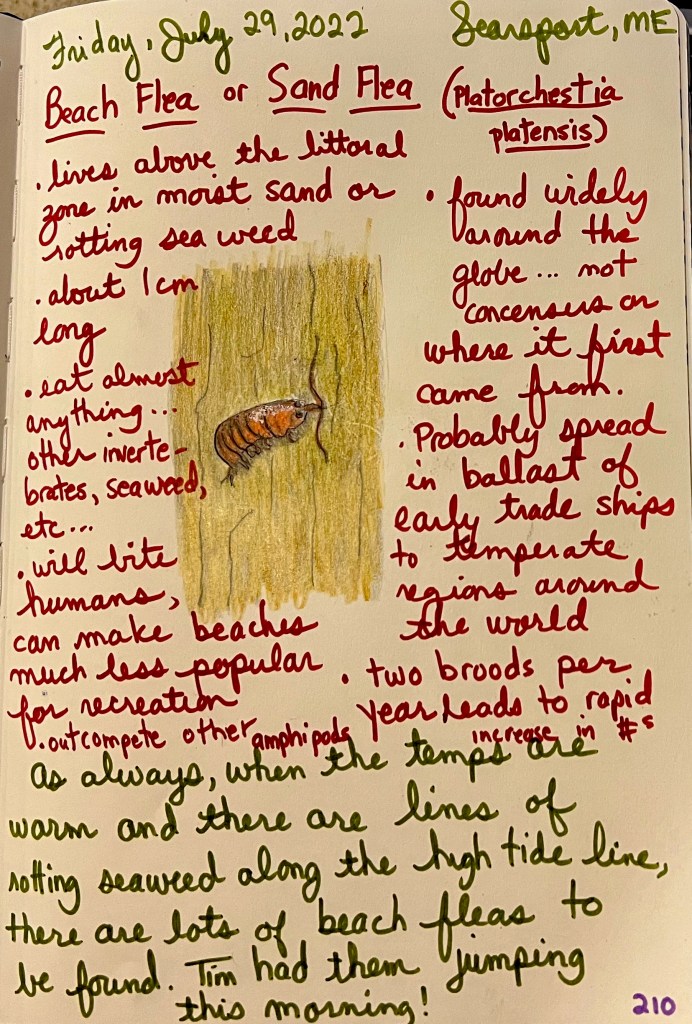 Friday, July 29, 2022 Searsport, ME
Beach Flea or Sand Flea (Platorchestia
platensis)
• lives above the littoral
zone in moist sand or
rotting sea weed
• about 1 cm
long
• eat almost
anything...
other inverte-
brates, seaweed,
etc...
• will bite
humans,
can make beaches
much less popular
for recreation
• outcompete other amphipods
• found widely
around the
globe... not
concensus on
where it first
came from.
• Probably spread
in ballast of
early trade ships
to temperate
regions around
the world
• two broods per
year leads to rapid
increase in #s
As always, when the temps are
warm and there are lines of
rotting seaweed along the high tide line,
there are lots of beach fleas to
be found. Tim had them jumping
this morning!
210